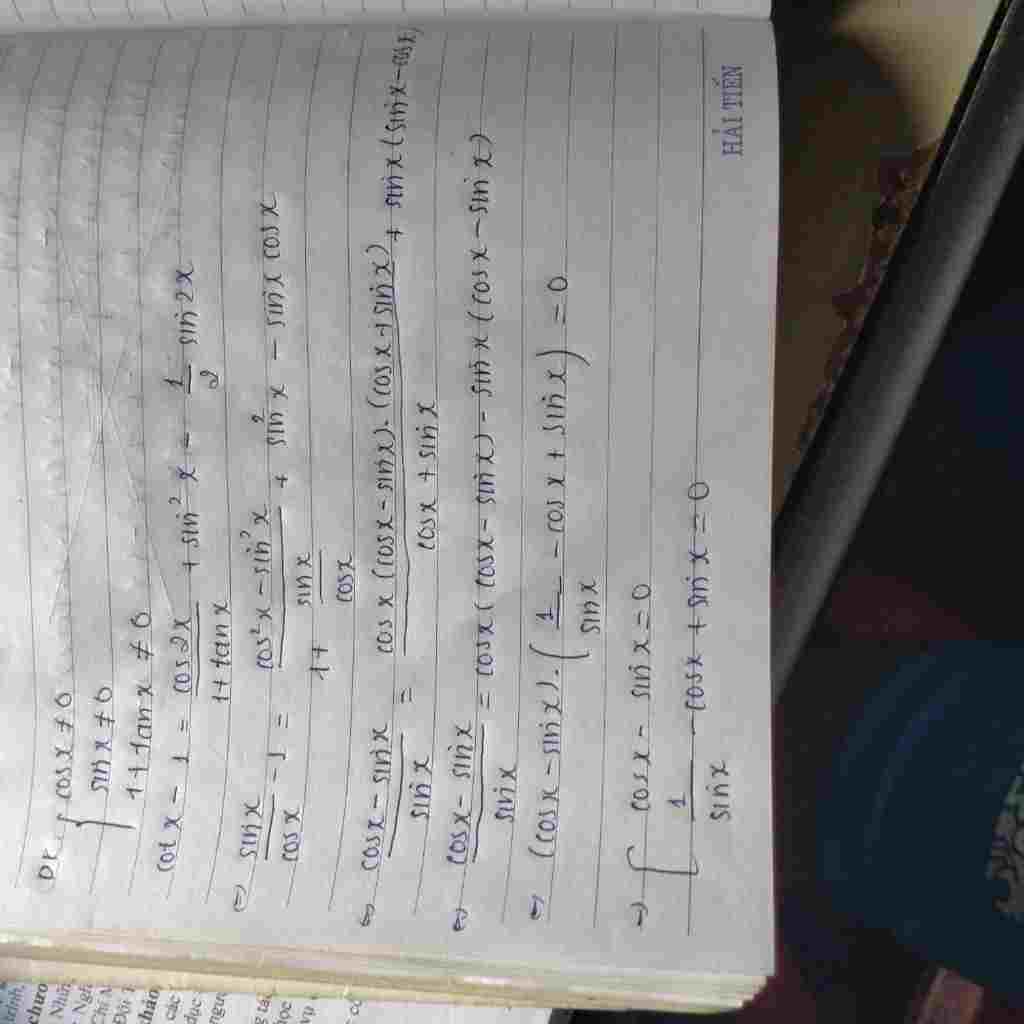 ĐK { cosx ≠ 0
sinx ≠ 0
1 + tanx ≠ 0
cotx - 1 = cos2x / (1 + tanx) + sin²x - 1/2 sin2x
⇔ sinx / cosx - 1 = (cos²x - sin²x) / (1 + sinx/cosx) + sin²x - sinx cosx
⇔ (cosx - sinx) / sinx = cosx (cosx - sinx).(cosx + sinx) / (cosx + sinx) + sinx (sinx - cosx)
⇔ (cosx - sinx) / sinx = cosx (cosx - sinx) - sinx (cosx - sinx)
⇔ (cosx - sinx).(1/sinx - cosx + sinx) = 0
⇒ [ cosx - sinx = 0
1/sinx - cosx + sinx = 0
HẢI TIẾN
chươ
Nhĩn
Ngh
Chí N
Đôi T
thảo
các
dục
ngườ
vụ